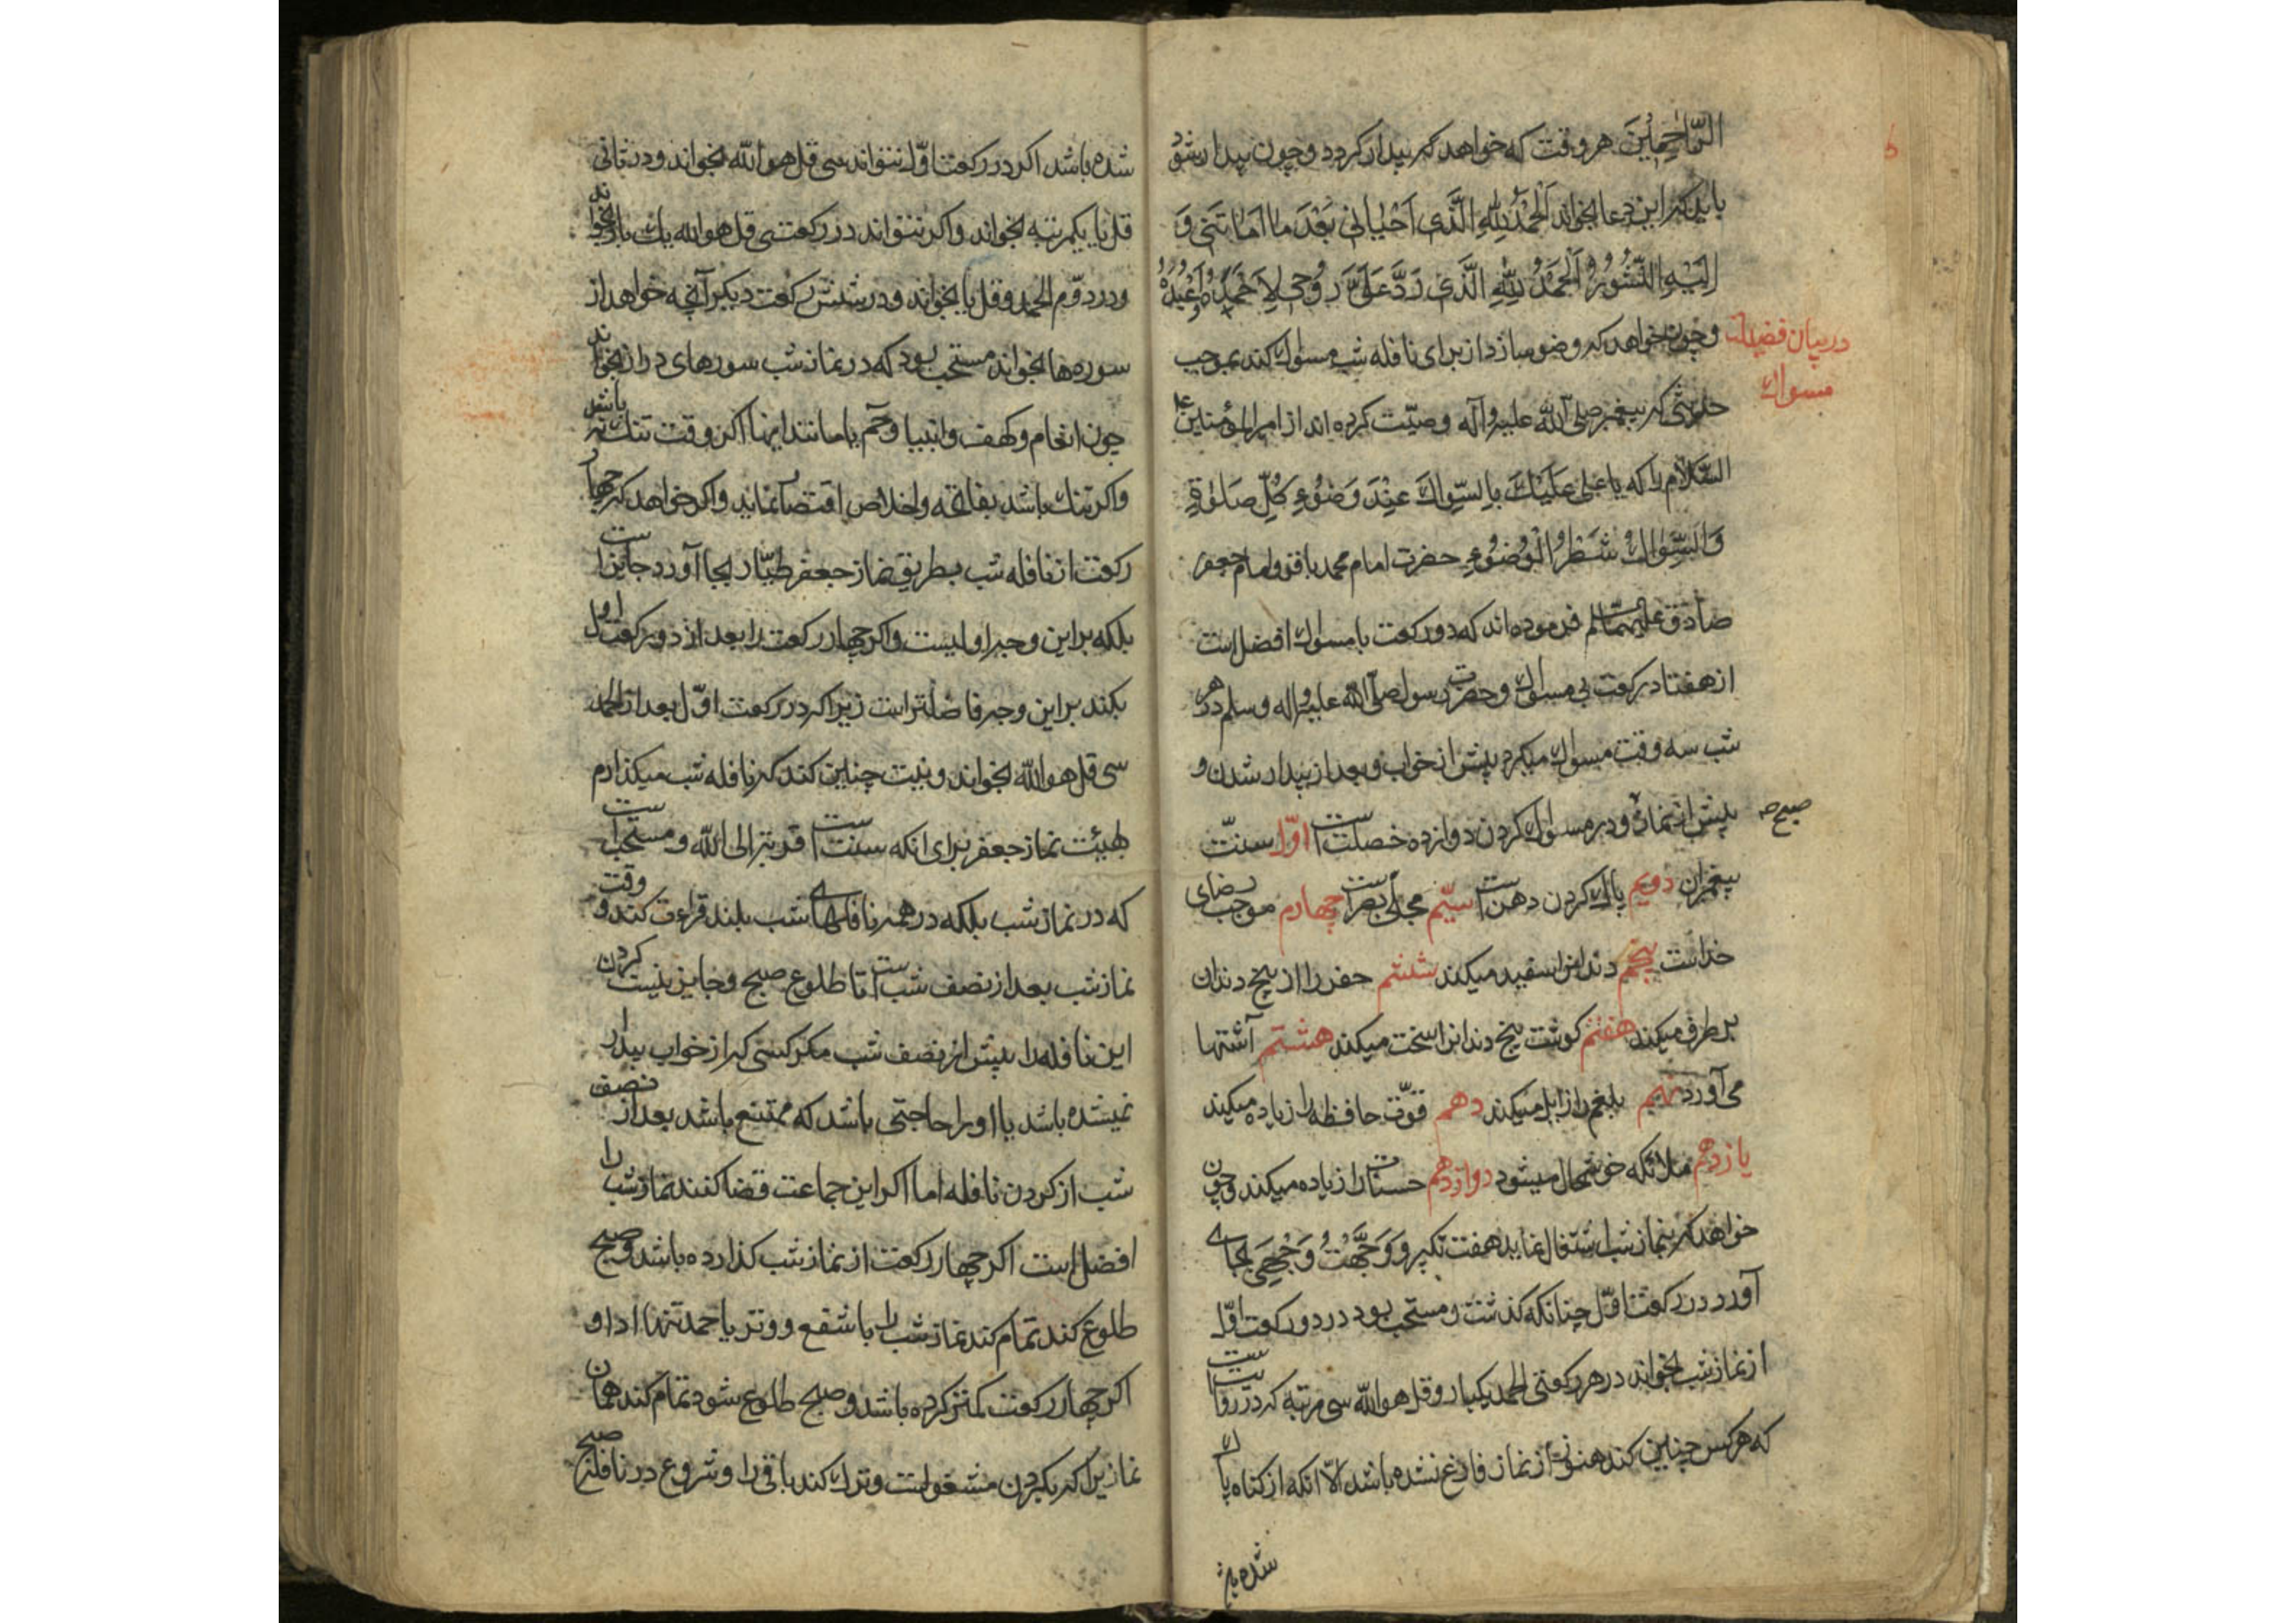 الرّاحِمينَ هر وقت که خواهد که بیدار کردد و چون بیدار شود
باید که این دعا بخواند اَلْحَمْدُ لِلّهِ الَّذی اَحْیٰانی بَعْدَ مٰا اَمٰاتَنی وَ
اِلَیْهِ النُّشُورُ اَلْحَمْدُ لِلّهِ الَّذی رَدَّ عَلَیَّ رُوحی لِاَحْمَدَهُ وَ اَعْبُدَهُ
و چون خواهد که وضو سازد از برای نافله شب مسواک کند بموجب
در بیان فضیلت
مسواک
حدیثی که پیغمبر صلی الله علیه وآله وصیّت کرده اند از امیرالمؤمنین علیه
السَّلام را که یا علی عَلَیْكَ بِالسِّواكَ عِنْدَ وَضُوءِ کُلِّ صَلٰوةٍ
وَالسِّواكُ شَطْرُ الْوُضُوءِ حضرت امام محمد باقر و امام جعفر
صادق علیهماالسّلم فرموده اند که دو رکعت با مسواک افضل است
از هفتاد رکعت بی مسواک و حضرت رسول صلّی الله علیه واله وسلم در هر
شب سه وقت مسواک میکرد پیش از خواب و بعد از بیدار شدن و
پیش از نماز و در مسواک کردن دوازده خصلت است اوّل سنّت
صبح صح
پیغمبران دویم پاک کردن دهن است سیّم مجلّی بصر است چهارم موجب رضای
خداست پنجم دندانرا سفید میکند ششم حفر را از بیخ دندان
برطرف میکند هفتم کوشت بیخ دندانرا سخت میکند هشتم آشتها
می آورد نهم بلغم را زایل میکند دهم قوّت حافظه را زیاده میکند
یازدهم ملائکه خوشحال میشود دوازدهم حسنات را زیاده میکند و چون
خواهد که بنماز شب اشتغال نماید هفت تکبیر و وَجَّهْتُ وَجْهِیَ بجای
آورد در رکعت اوّل چنانکه کذشت و مستحب بود در دو رکعت اوّل
از نماز شب بخواند در هر رکعتی الحمد یکبار و قل هو الله سی مرتبه که در روایت است
که هر کس چنین کند هنوز از نماز فارغ نشده باشد الّا انکه از کناه پاک
شده باشد
شده باشد اکر در رکعت اوّل نتواند سی قل هو الله بخواند و در ثانی
قل یا یکمرتبه بخواند و اکر نتواند در رکعت سی قل هو الله یک بار بخواند
و در دوّم الحمد و قل یا بخواند و در شش رکعت دیکر آنچه خواهد از
سوره ها بخواند مستحب بود که در نماز شب سورهای دراز بخواند
چون انعام و کهف و انبیا و حٓم یا مانند اینها اکر وقت تنک نه باشد
و اکر تنک باشد بفاتحه و اخلاص اقتصار نماید و اکر خواهد که چهار
رکعت از نافله شب بطریق نماز جعفر طیّار بجا آورد جایز است
بلکه براین وجه اولیست و اکر چهار رکعت را بعد از دو رکعت اول
بکند براین وجه فاضلتر است زیرا که در رکعت اوّل بعد از الحمد
سی قل هو الله بخواند و نیت چنین کند که نافله شب میکذارم
بهیئت نماز جعفر برای انکه سنت است قربة الی الله و مستحب است
که در نماز شب بلکه در همه نافلهای شب بلند قراءت کند و وقت
نماز شب بعد از نصف شب است تا طلوع صبح و جایز نیست کردن
این نافله را پیش از نصف شب مکر کسی که از خواب بیدار
نمیشده باشد یا او را حاجتی باشد که ممتنع باشد بعد از نصف
شب از کردن نافله اما اکر این جماعت قضا کنند نماز شب را
افضل است اکر چهار رکعت از نماز شب کذارده باشد و صبح
طلوع کند تمام کند نماز شب را با شفع و وتر یا حمد تنها ادا و
اکر چهار رکعت کمتر کرده باشد و صبح طلوع شود تمام کند همان
نماز یرا که بکردن مشغولست و ترک کند باقی را و شروع در نافله صبح